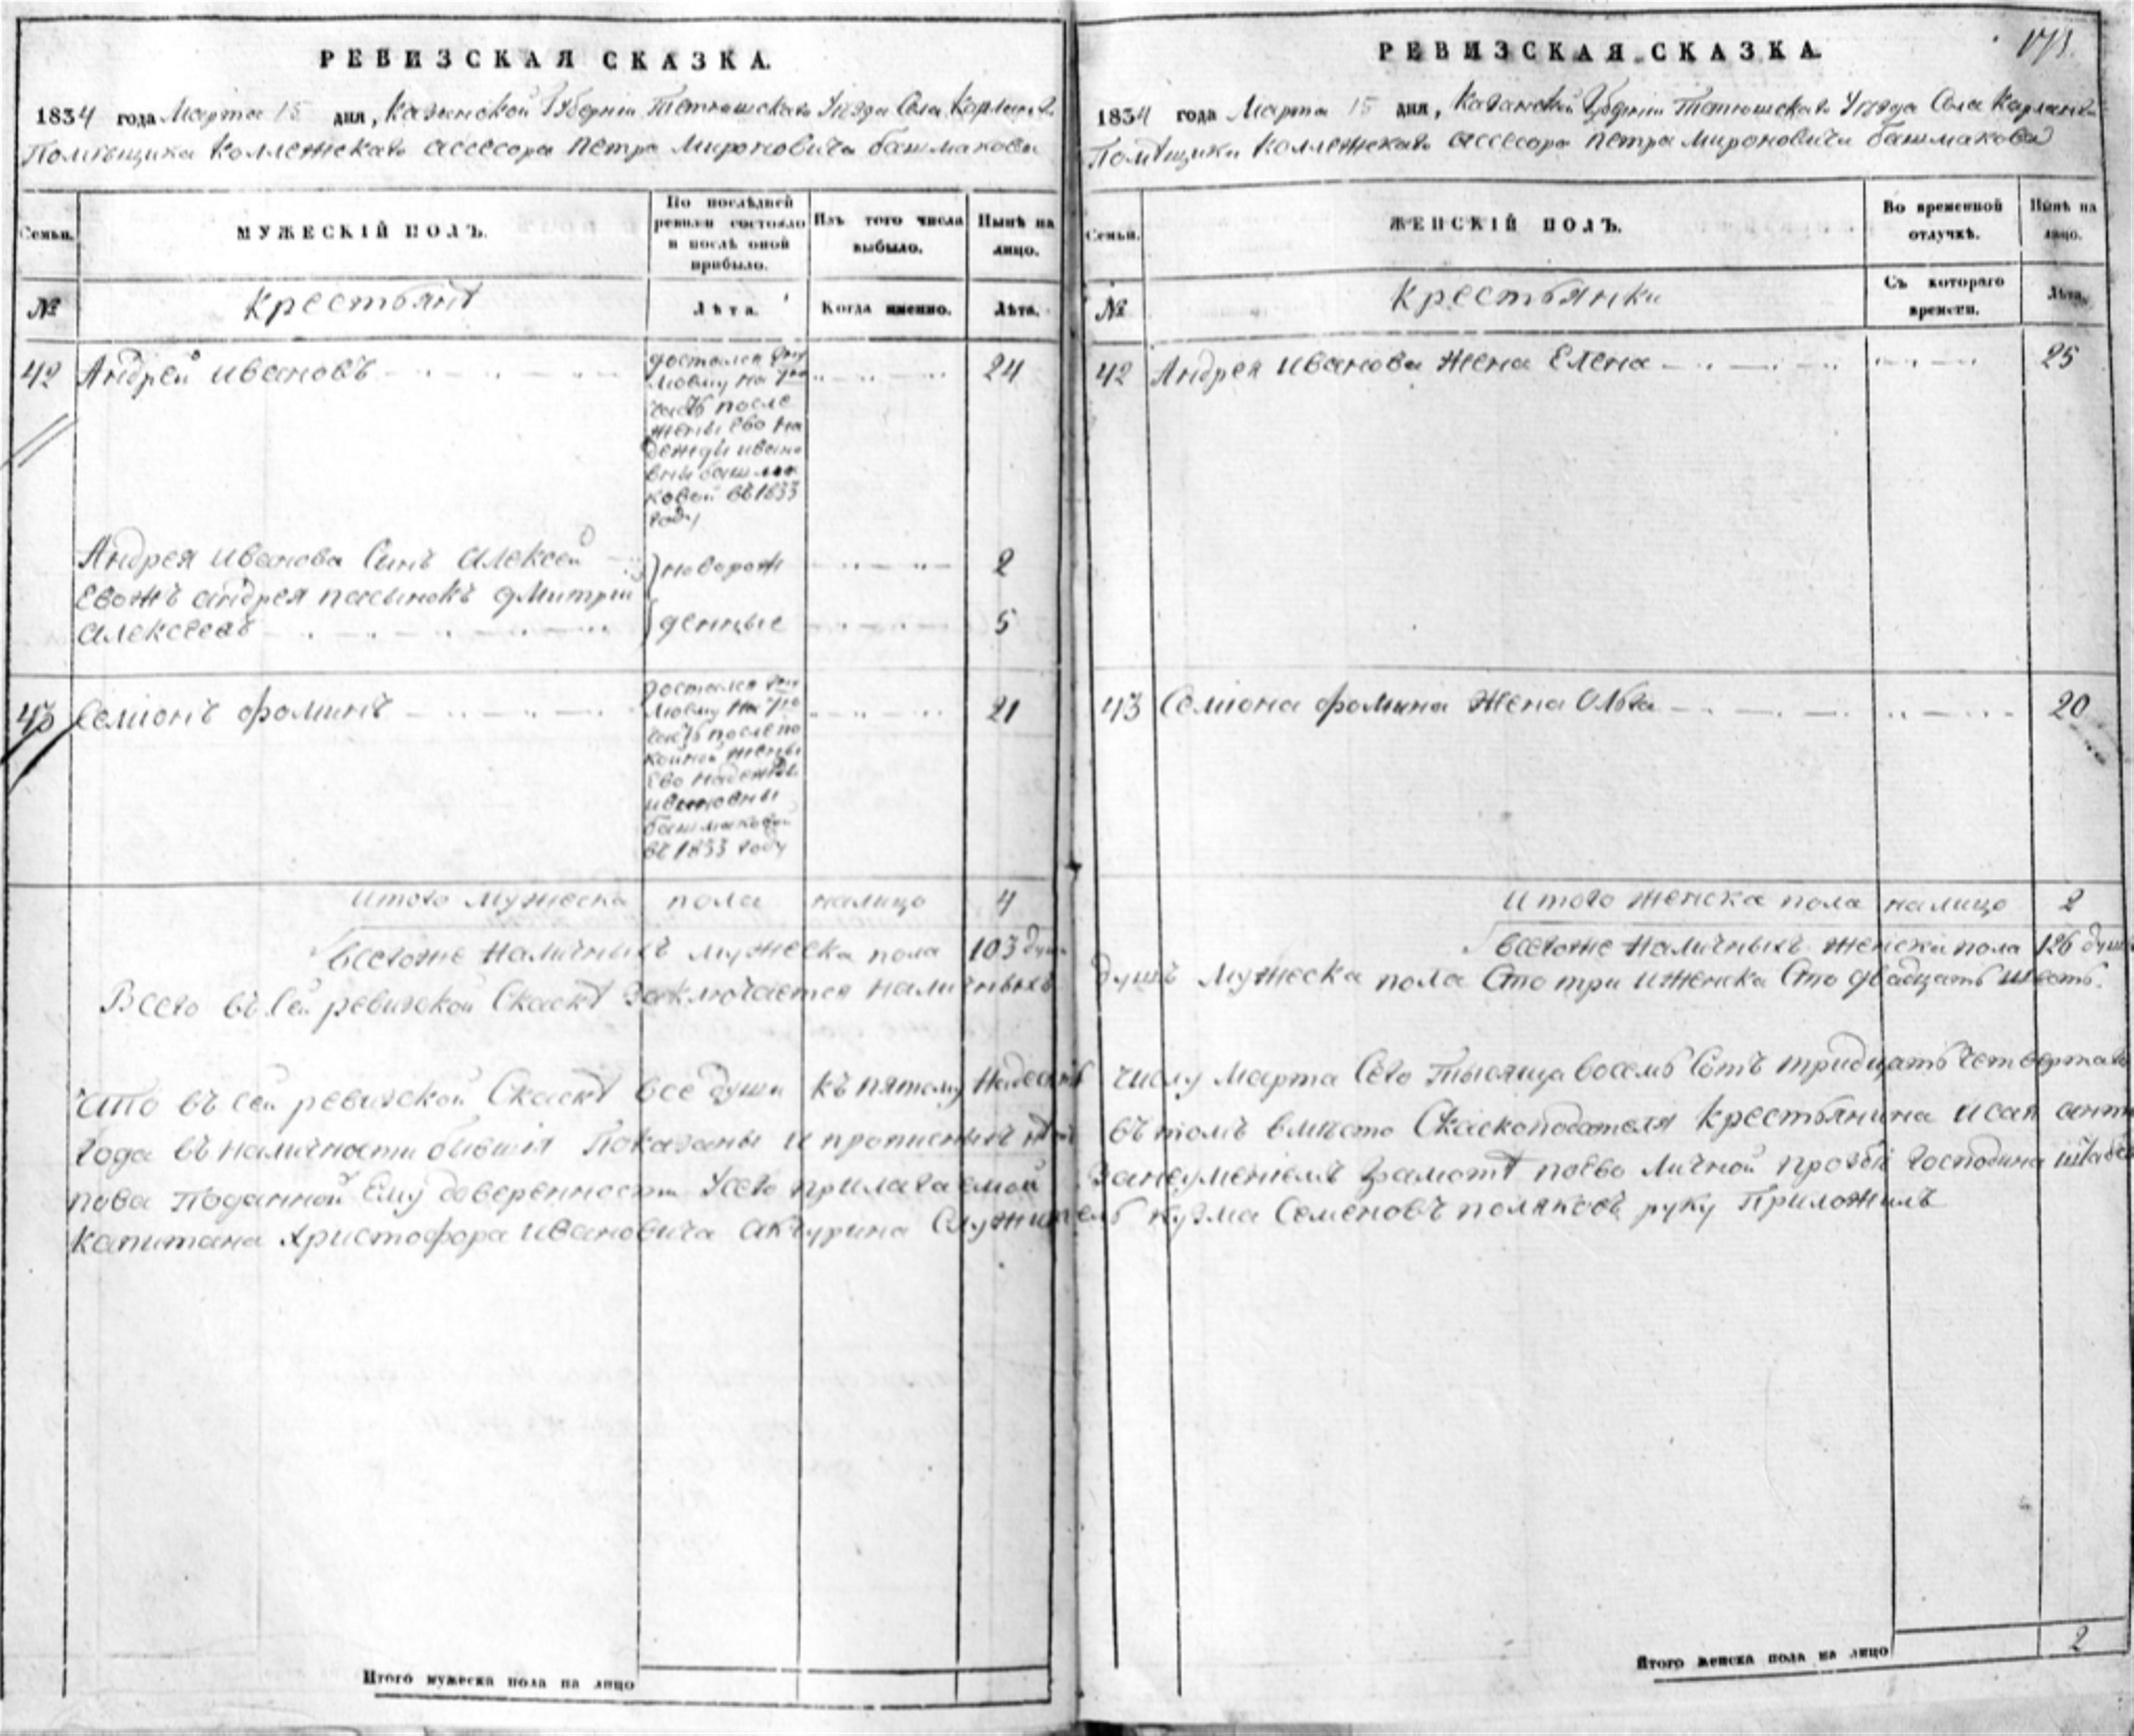 РЕВИЗСКАЯ СКАЗКА.
1834 года Марта 15 дня, Казанской Губернии Тетюшскаго Уезда Села
Помѣщика Коллежскаго ассесора Петра Мироновича башмакова
Семьи.
МУЖЕСКІЙ ПОЛЪ.
По послѣдней ревизіи состояло и послѣ оной прибыло.
Изъ того числа выбыло.
Нынѣ на лицо.
№
Крестьянѣ
Лѣта.
Когда именно.
Лѣта.
42 Андрей ивановъ
24
достался
на
часть после
жены ево на
дежды ивано
вны башма
ковой въ 1833
году
Андрея иванова Сынъ алексей
новорож
2
Евожъ андрея пасынокъ дмитрий
алексеевъ
денные
5
43 Семионъ фоминъ
21
достался
на
часть после по
койной жены
Ево надежды
ивановны
башмаковой
въ 1833 году
итого мужеска пола налицо 4
всегоже наличныхъ мужеска пола 103 душ
Всего въ сей ревизской Скаскѣ заключается наличныхъ
что въ сей ревизской Скаскѣ все души къ пятому надесять
года въ наличности бывшія Показаны и прописныхъ
пова Поданной Ему доверенности Усего прилагаемой
капитана христофора ивановича акчурина Служитель
Итого мужеска пола на лицо
РЕВИЗСКАЯ СКАЗКА.
1834 года Марта 15 дня, Казанской Губернии Тетюшскаго Уезда Села
Помѣщика Коллежскаго ассесора петра мироновича башмакова
Семьи.
ЖЕНСКІЙ ПОЛЪ.
Во временной отлучкѣ.
Нынѣ на лицо.
№
Крестьянки
Съ котораго времени.
Лѣта.
42 Андрея иванова жена Елена
25
43 Семиона фомина жена Ольга
20
итого женска пола налицо 2
всегоже наличныхъ женска пола 126 душ
душъ мужеска пола Сто три иженска Сто двадцать шесть.
числу Марта Сего тысяща восемь Сотъ тридцать четвертаго
въ томъ вместо Скаскоподателя Крестьянина исая анти
занеумениемъ грамотѣ поево личной прозбѣ господина штабсъ
кузма Семеновъ поляковъ руку Приложилъ
Итого женска пола на лицо
2